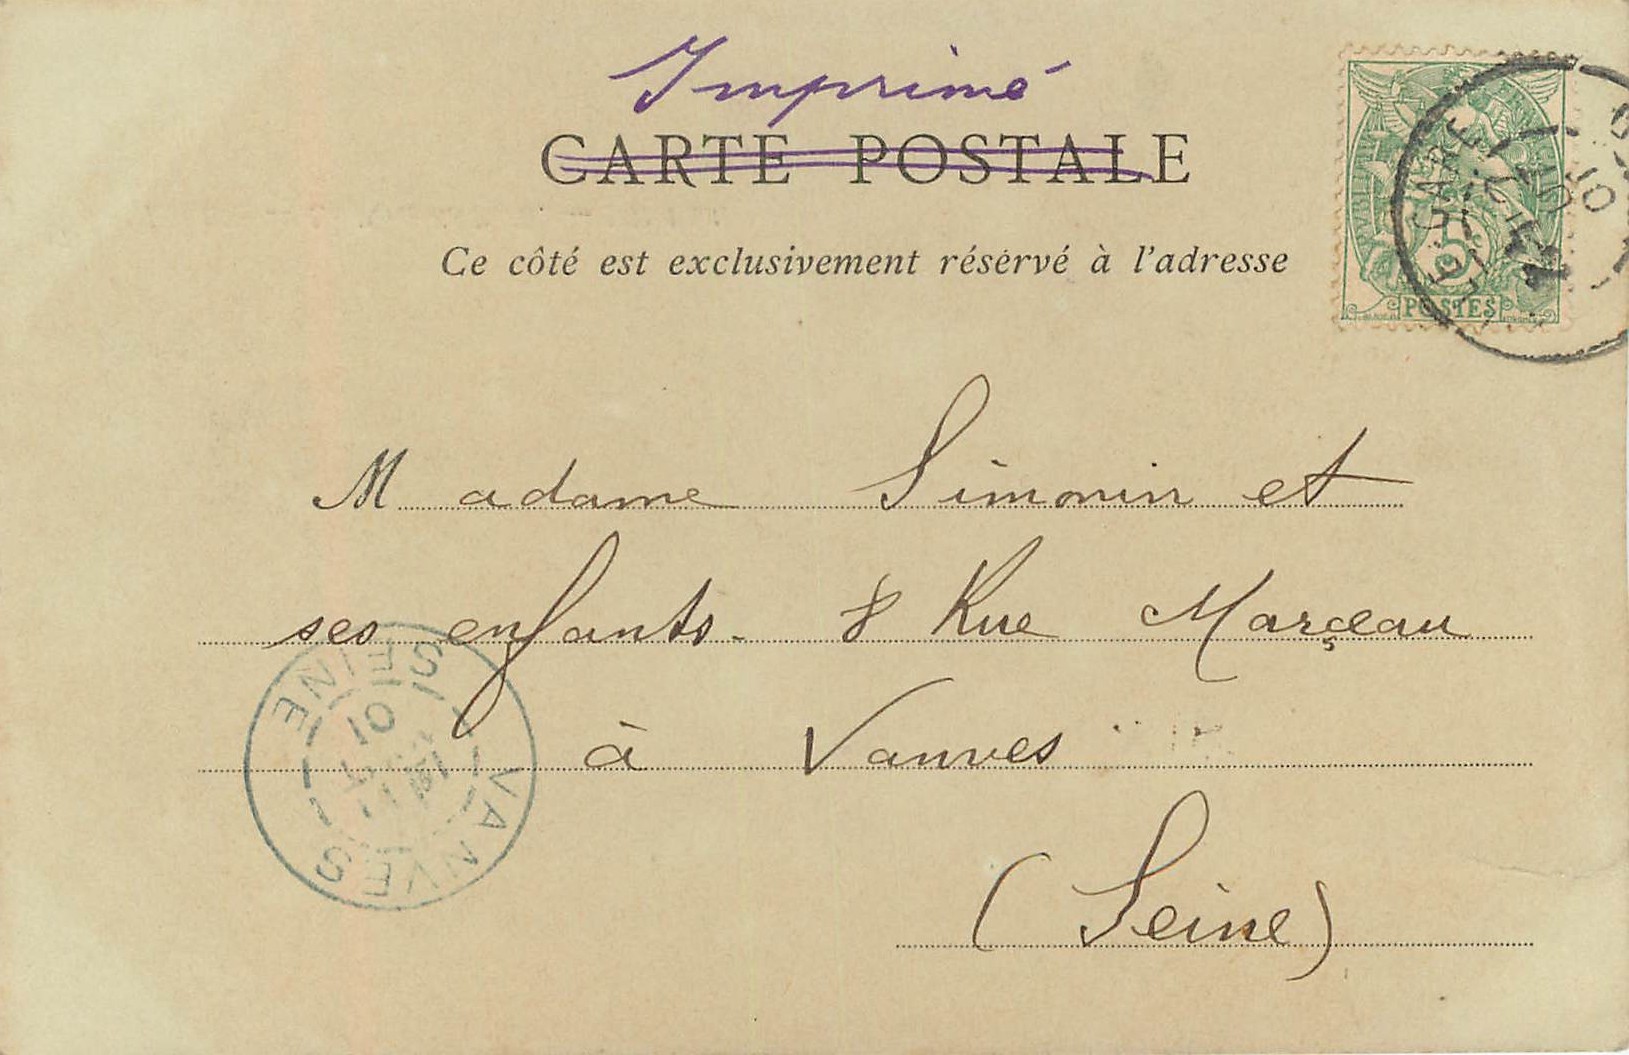 Imprimé
CARTE POSTALE
Ce côté est exclusivement réservé à l'adresse
5
POSTES
GARE
01
Madame Simonin et
ses enfants. 8 Rue Marçeau
à Vanves
(Seine)
VANVES
SEINE
01